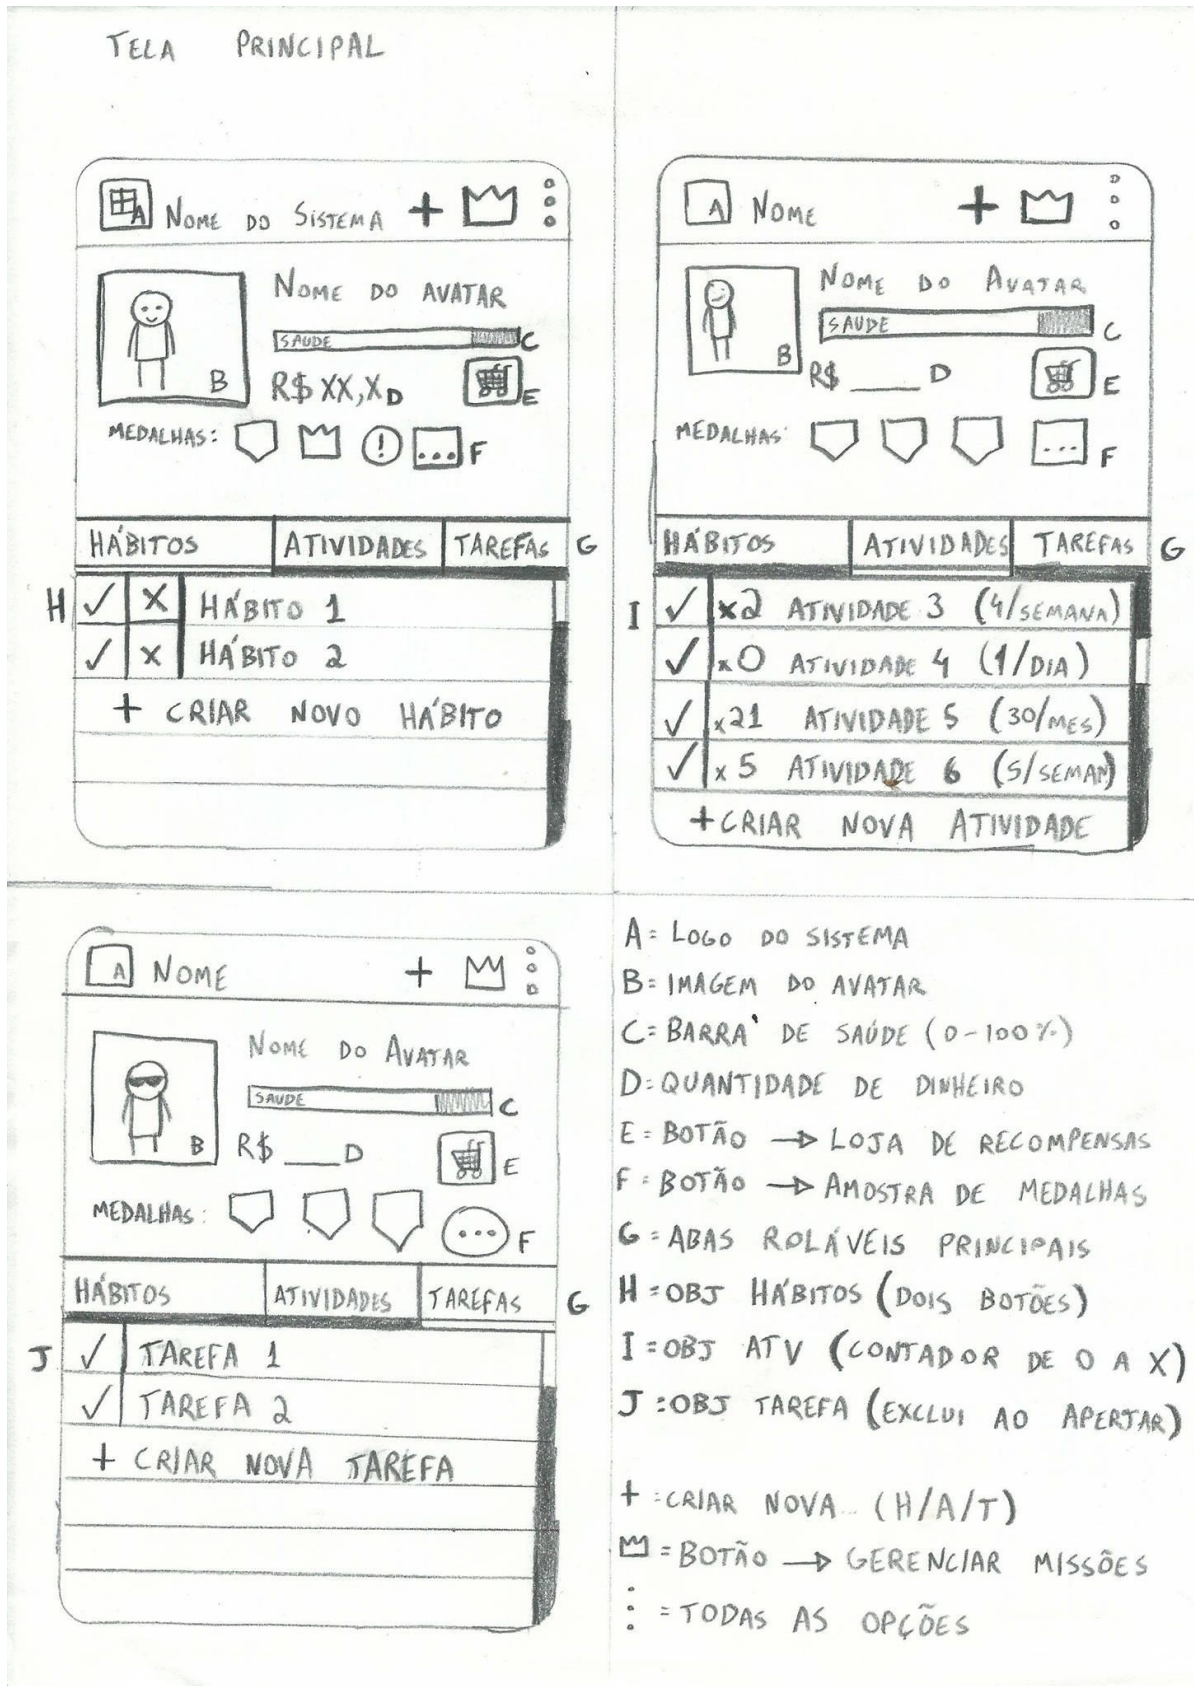 TELA PRINCIPAL
A NOME DO SISTEMA +
NOME DO AVATAR
SAUDE C
B R$ XX,X D E
MEDALHAS: ! ... F
HÁBITOS ATIVIDADES TAREFAS G
H ✓ X HÁBITO 1
✓ X HÁBITO 2
+ CRIAR NOVO HÁBITO
A NOME +
NOME DO AVATAR
SAUDE C
B R$ ___ D E
MEDALHAS: ... F
HÁBITOS ATIVIDADES TAREFAS G
I ✓ x2 ATIVIDADE 3 (4/SEMANA)
✓ x0 ATIVIDADE 4 (1/DIA)
✓ x21 ATIVIDADE 5 (30/MES)
✓ x5 ATIVIDADE 6 (5/SEMAN)
+ CRIAR NOVA ATIVIDADE
A NOME +
NOME DO AVATAR
SAUDE C
B R$ ___ D E
MEDALHAS: ... F
HÁBITOS ATIVIDADES TAREFAS G
J ✓ TAREFA 1
✓ TAREFA 2
+ CRIAR NOVA TAREFA
A = LOGO DO SISTEMA
B = IMAGEM DO AVATAR
C = BARRA DE SAÚDE (0-100%)
D = QUANTIDADE DE DINHEIRO
E = BOTÃO → LOJA DE RECOMPENSAS
F = BOTÃO → AMOSTRA DE MEDALHAS
G = ABAS ROLÁVEIS PRINCIPAIS
H = OBJ HÁBITOS (DOIS BOTÕES)
I = OBJ ATV (CONTADOR DE 0 A X)
J = OBJ TAREFA (EXCLUI AO APERTAR)
+ = CRIAR NOVA... (H/A/T)
= BOTÃO → GERENCIAR MISSÕES
⋮ = TODAS AS OPÇÕES